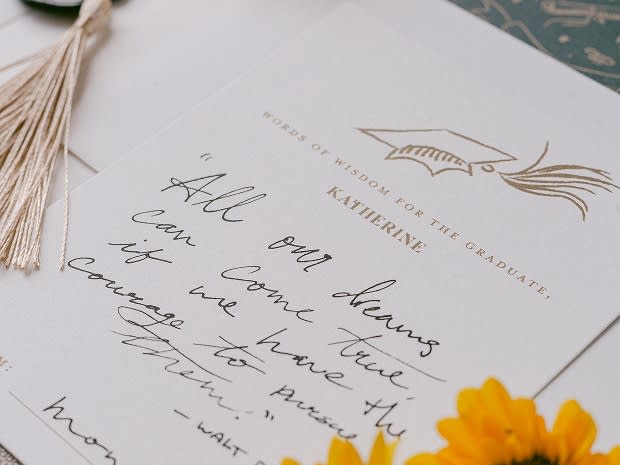 WORDS OF WISDOM FOR THE GRADUATE,
KATHERINE
"All our dreams
can come true,
if we have the
courage to pursue
them."
- WALT
M:
mom